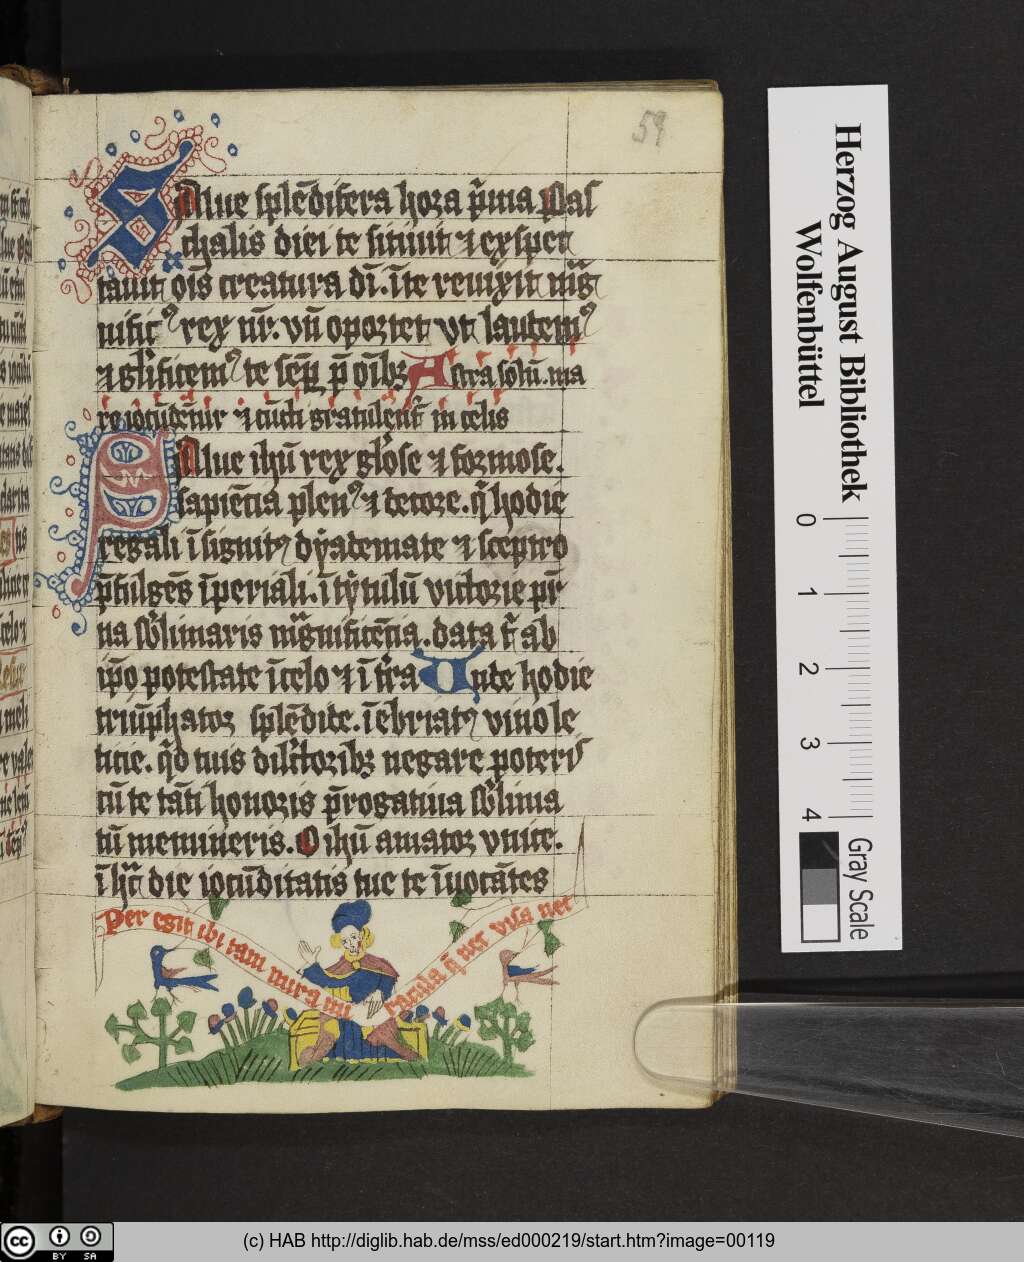 59
SAlue splēdifera hora p̄ma Pas
chalis diei te sitiuit ⁊ exspec
tauit oīs creatura dn̄i. ī te reuixit māg
nific⁹ rex nr̄. vn̄ oportet vt laudem⁹
⁊ gl̄ificem⁹ te semꝑ p̄ oībꝫ Astra solū. ma
re iocūdētur ⁊ cūcti gratulent᷑ in celis
SAlue ihū rex gl̄ose ⁊ formose.
sapiēcia plen⁹ ⁊ decore. q̄ hodie
regali īsignit⁹ dyademate ⁊ sceptro
p̄fulgēs īperiali. ī tytulū victorie pr̄
na sb̄limaris māgnificēcia. data ē ab
ip̄o potestate ī celo ⁊ ī t̄ra Unde hodie
triūphator splēdide. īebriat⁹ vino le
ticie. qd̄ tuis dilc̄toribꝫ negare poteris
cū te tāti honoris p̄rogatiua sb̄lima
tū memineris. O ihū amator vnice.
ī hac die iocūditatis tue te īuocātes
Per egit ibi tam mira mi
racula q̄ nec visa nec
Herzog August Bibliothek
Wolfenbüttel
0 1 2 3 4
Gray Scale
cc BY SA
(c) HAB http://diglib.hab.de/mss/ed000219/start.htm?image=00119